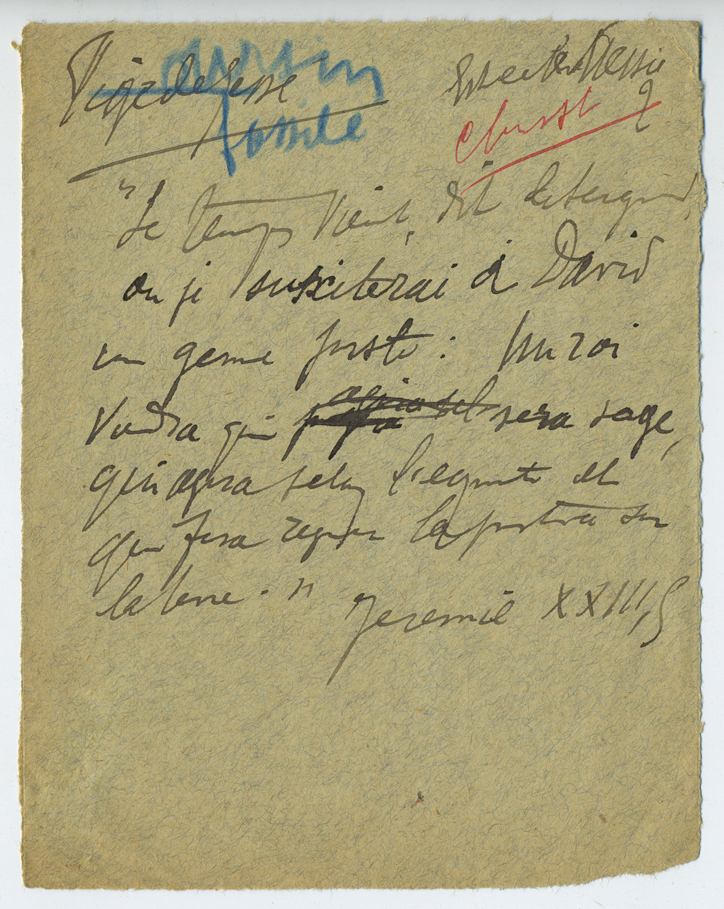 Tige de Jessé
oursin
fossile
Est ce le Messie
?
Christ
"Le temps vient, dit le Seigneur,
ou je susciterai à David
un germe juste : Un roi
viendra qui sera sage,
qui agira selon l'equité et
qui fera regner la justice sur
la terre."
Jeremie XXIII,5